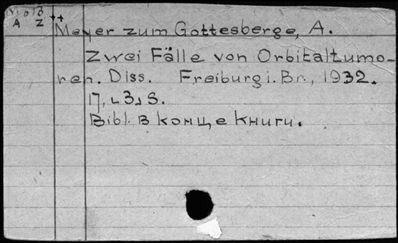 A Z
Meyer zum Gottesberge, A.
Zwei Fälle von Orbitaltumo-
ren. Diss. Freiburg i. Br., 1932.
17, [3] S.
Bibl. в конце книги.